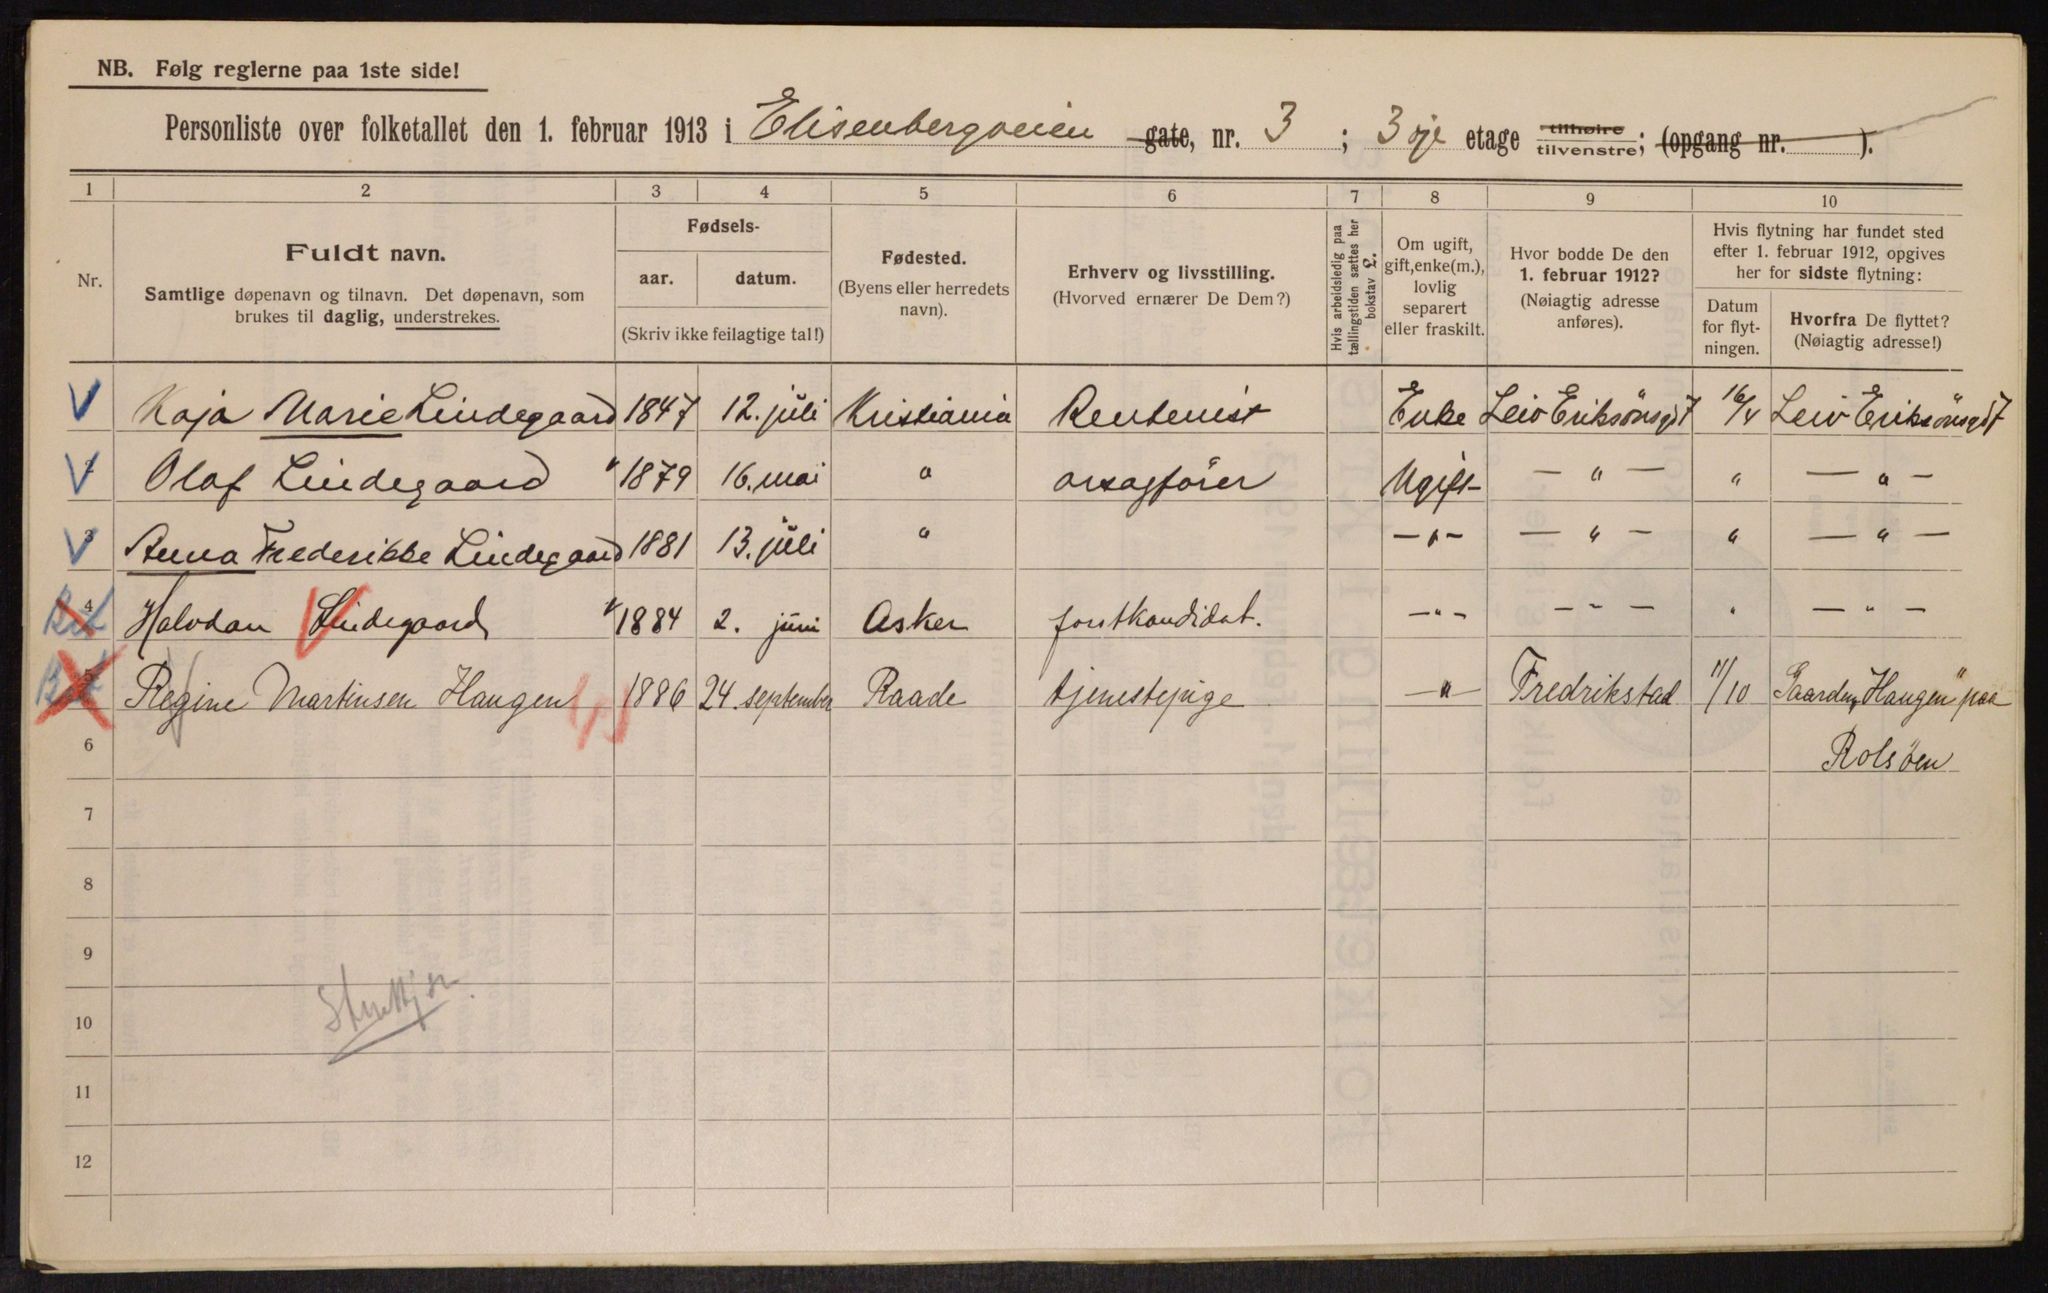 NB. Følg reglerne paa 1ste side!
Personliste over folketallet den 1. februar 1913 i Elisenbergveien gate, nr. 3 ; 3dje etage tilhøire tilvenstre; (opgang nr. ).
1 2 3 4 5 6 7 8 9 10
Nr.
Fuldt navn.
Samtlige døpenavn og tilnavn. Det døpenavn, som
brukes til daglig, understrekes.
Fødsels-
aar. datum.
(Skriv ikke feilagtige tal!)
Fødested.
(Byens eller herredets
navn).
Erhverv og livsstilling.
(Hvorved ernærer De Dem?)
Hvis arbeidsledig paa
tællingstiden sættes her
bokstav L.
Om ugift,
gift, enke(m.),
lovlig
separert
eller fraskilt.
Hvor bodde De den
1. februar 1912?
(Nøiagtig adresse
anføres).
Hvis flytning har fundet sted
efter 1. februar 1912, opgives
her for sidste flytning:
Datum
for flyt-
ningen.
Hvorfra De flyttet?
(Nøiagtig adresse!)
Kaja Marie Lindegaard 1847 12. juli Kristiania Rentenist Enke Leiv Eriksönsgt 7 16/4 Leiv Eriksönsgt 7
2 Olaf Lindegaard 1879 16. mai " orsagförer Ugift — " — " — " —
3 Anna Frederikke Lindegaard 1881 13. juli " — " — — " — " — " —
4 Halvdan Lindegaard 1884 2. juni Asker forstkandidat. — " — — " — " — " —
5 Regine Martinsen Haugen 1886 24. september Raade tjenestepige — " Fredrikstad 11/10 Gaarden "Haugen" paa
6 Rolsöen
7
8
9
10
11
12